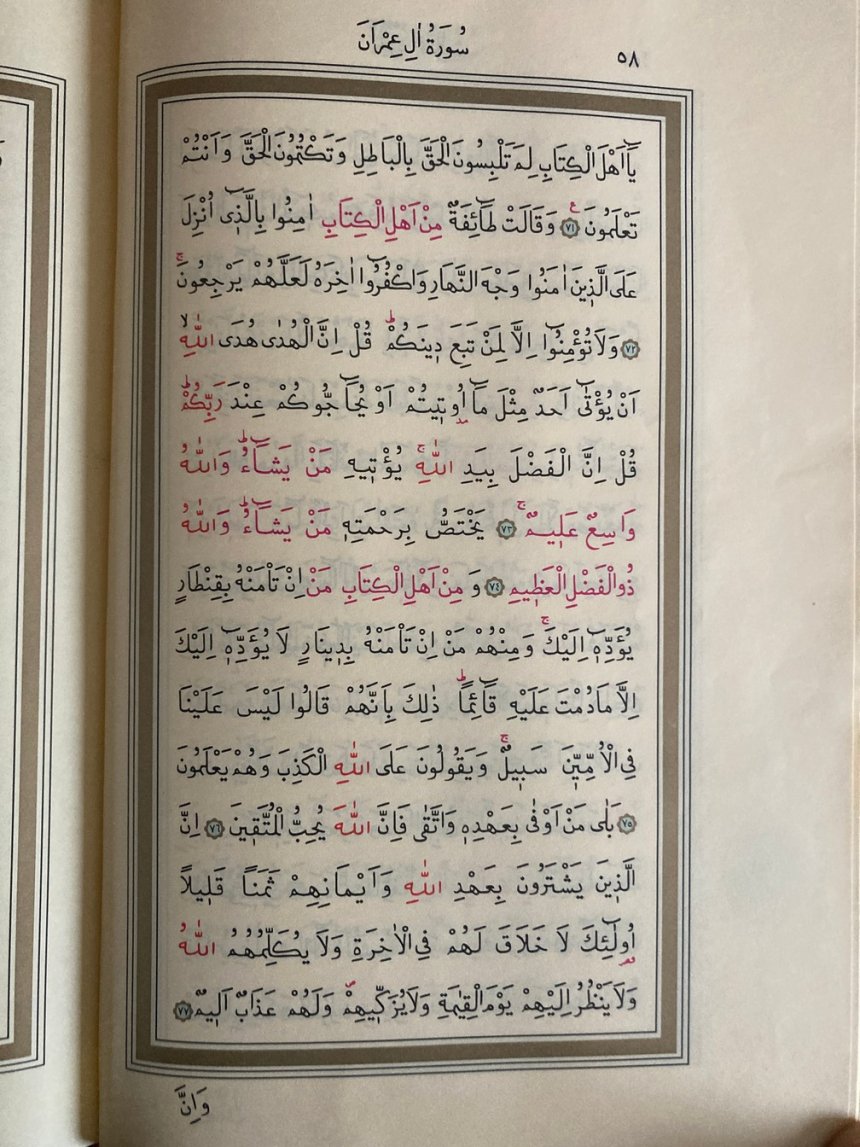 سُورَةُ اٰلِ عِمْرَانَ
٥٨
يَٓا اَهْلَ الْكِتَابِ لِمَ تَلْبِسُونَ الْحَقَّ بِالْبَاطِلِ وَتَكْتُمُونَ الْحَقَّ وَاَنْتُمْ
تَعْلَمُونَ۟ ﴿٧١﴾ وَقَالَتْ طَٓائِفَةٌ مِنْ اَهْلِ الْكِتَابِ اٰمِنُوا بِالَّذ۪ٓي اُنْزِلَ
عَلَى الَّذ۪ينَ اٰمَنُوا وَجْهَ النَّهَارِ وَاكْفُرُٓوا اٰخِرَهُ لَعَلَّهُمْ يَرْجِعُونَۚ
﴿٧٢﴾ وَلَا تُؤْمِنُٓوا اِلَّا لِمَنْ تَبِعَ د۪ينَكُمْۜ قُلْ اِنَّ الْهُدٰى هُدَى اللّٰهِۙ
اَنْ يُؤْتٰٓى اَحَدٌ مِثْلَ مَٓا اُو۫ت۪يتُمْ اَوْ يُحَٓاجُّوكُمْ عِنْدَ رَبِّكُمْۜ
قُلْ اِنَّ الْفَضْلَ بِيَدِ اللّٰهِۚ يُؤْت۪يهِ مَنْ يَشَٓاءُۜ وَاللّٰهُ
وَاسِعٌ عَل۪يمٌۚ ﴿٧٣﴾ يَخْتَصُّ بِرَحْمَتِه۪ مَنْ يَشَٓاءُۜ وَاللّٰهُ
ذُو الْفَضْلِ الْعَظ۪يمِ ﴿٧٤﴾ وَمِنْ اَهْلِ الْكِتَابِ مَنْ اِنْ تَأْمَنْهُ بِقِنْطَارٍ
يُؤَدِّه۪ٓ اِلَيْكَۚ وَمِنْهُمْ مَنْ اِنْ تَأْمَنْهُ بِد۪ينَارٍ لَا يُؤَدِّه۪ٓ اِلَيْكَ
اِلَّا مَا دُمْتَ عَلَيْهِ قَٓائِمًاۜ ذٰلِكَ بِاَنَّهُمْ قَالُوا لَيْسَ عَلَيْنَا
فِي الْاُمِّيّ۪نَ سَب۪يلٌۚ وَيَقُولُونَ عَلَى اللّٰهِ الْكَذِبَ وَهُمْ يَعْلَمُونَ
﴿٧٥﴾ بَلٰى مَنْ اَوْفٰى بِعَهْدِه۪ وَاتَّقٰى فَاِنَّ اللّٰهَ يُحِبُّ الْمُتَّق۪ينَ ﴿٧٦﴾ اِنَّ
الَّذ۪ينَ يَشْتَرُونَ بِعَهْدِ اللّٰهِ وَاَيْمَانِهِمْ ثَمَنًا قَل۪يلًا
اُو۬لٰٓئِكَ لَا خَلَاقَ لَهُمْ فِي الْاٰخِرَةِ وَلَا يُكَلِّمُهُمُ اللّٰهُ
وَلَا يَنْظُرُ اِلَيْهِمْ يَوْمَ الْقِيٰمَةِ وَلَا يُزَكّ۪يهِمْۖ وَلَهُمْ عَذَابٌ اَل۪يمٌ ﴿٧٧﴾
وَاِنَّ